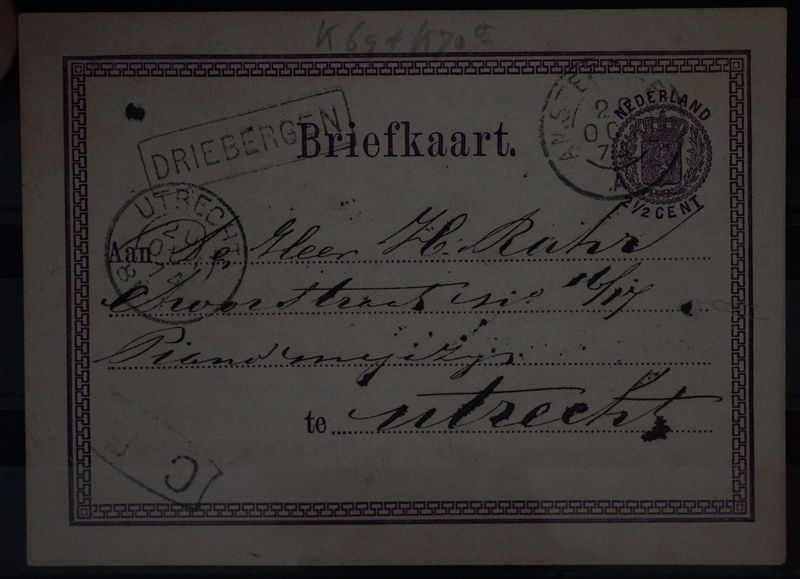 K 69 + K70
DRIEBERGEN
Briefkaart.
AMSTERDAM
20
OC
7
A
NEDERLAND
2½ CENT
UTRECHT
20
OC
7
8
Aan De Heer H. Rahr
Choorstraat no 16/17
Piano
te Utrecht
C